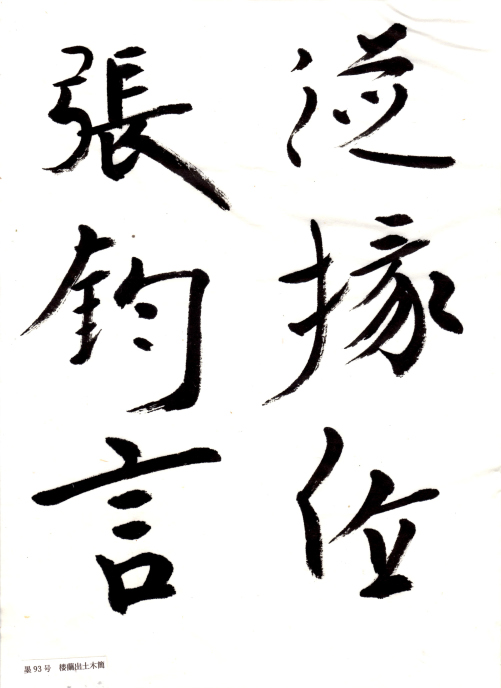 從掾位
張鈞言
墨93号 楼蘭出土木簡